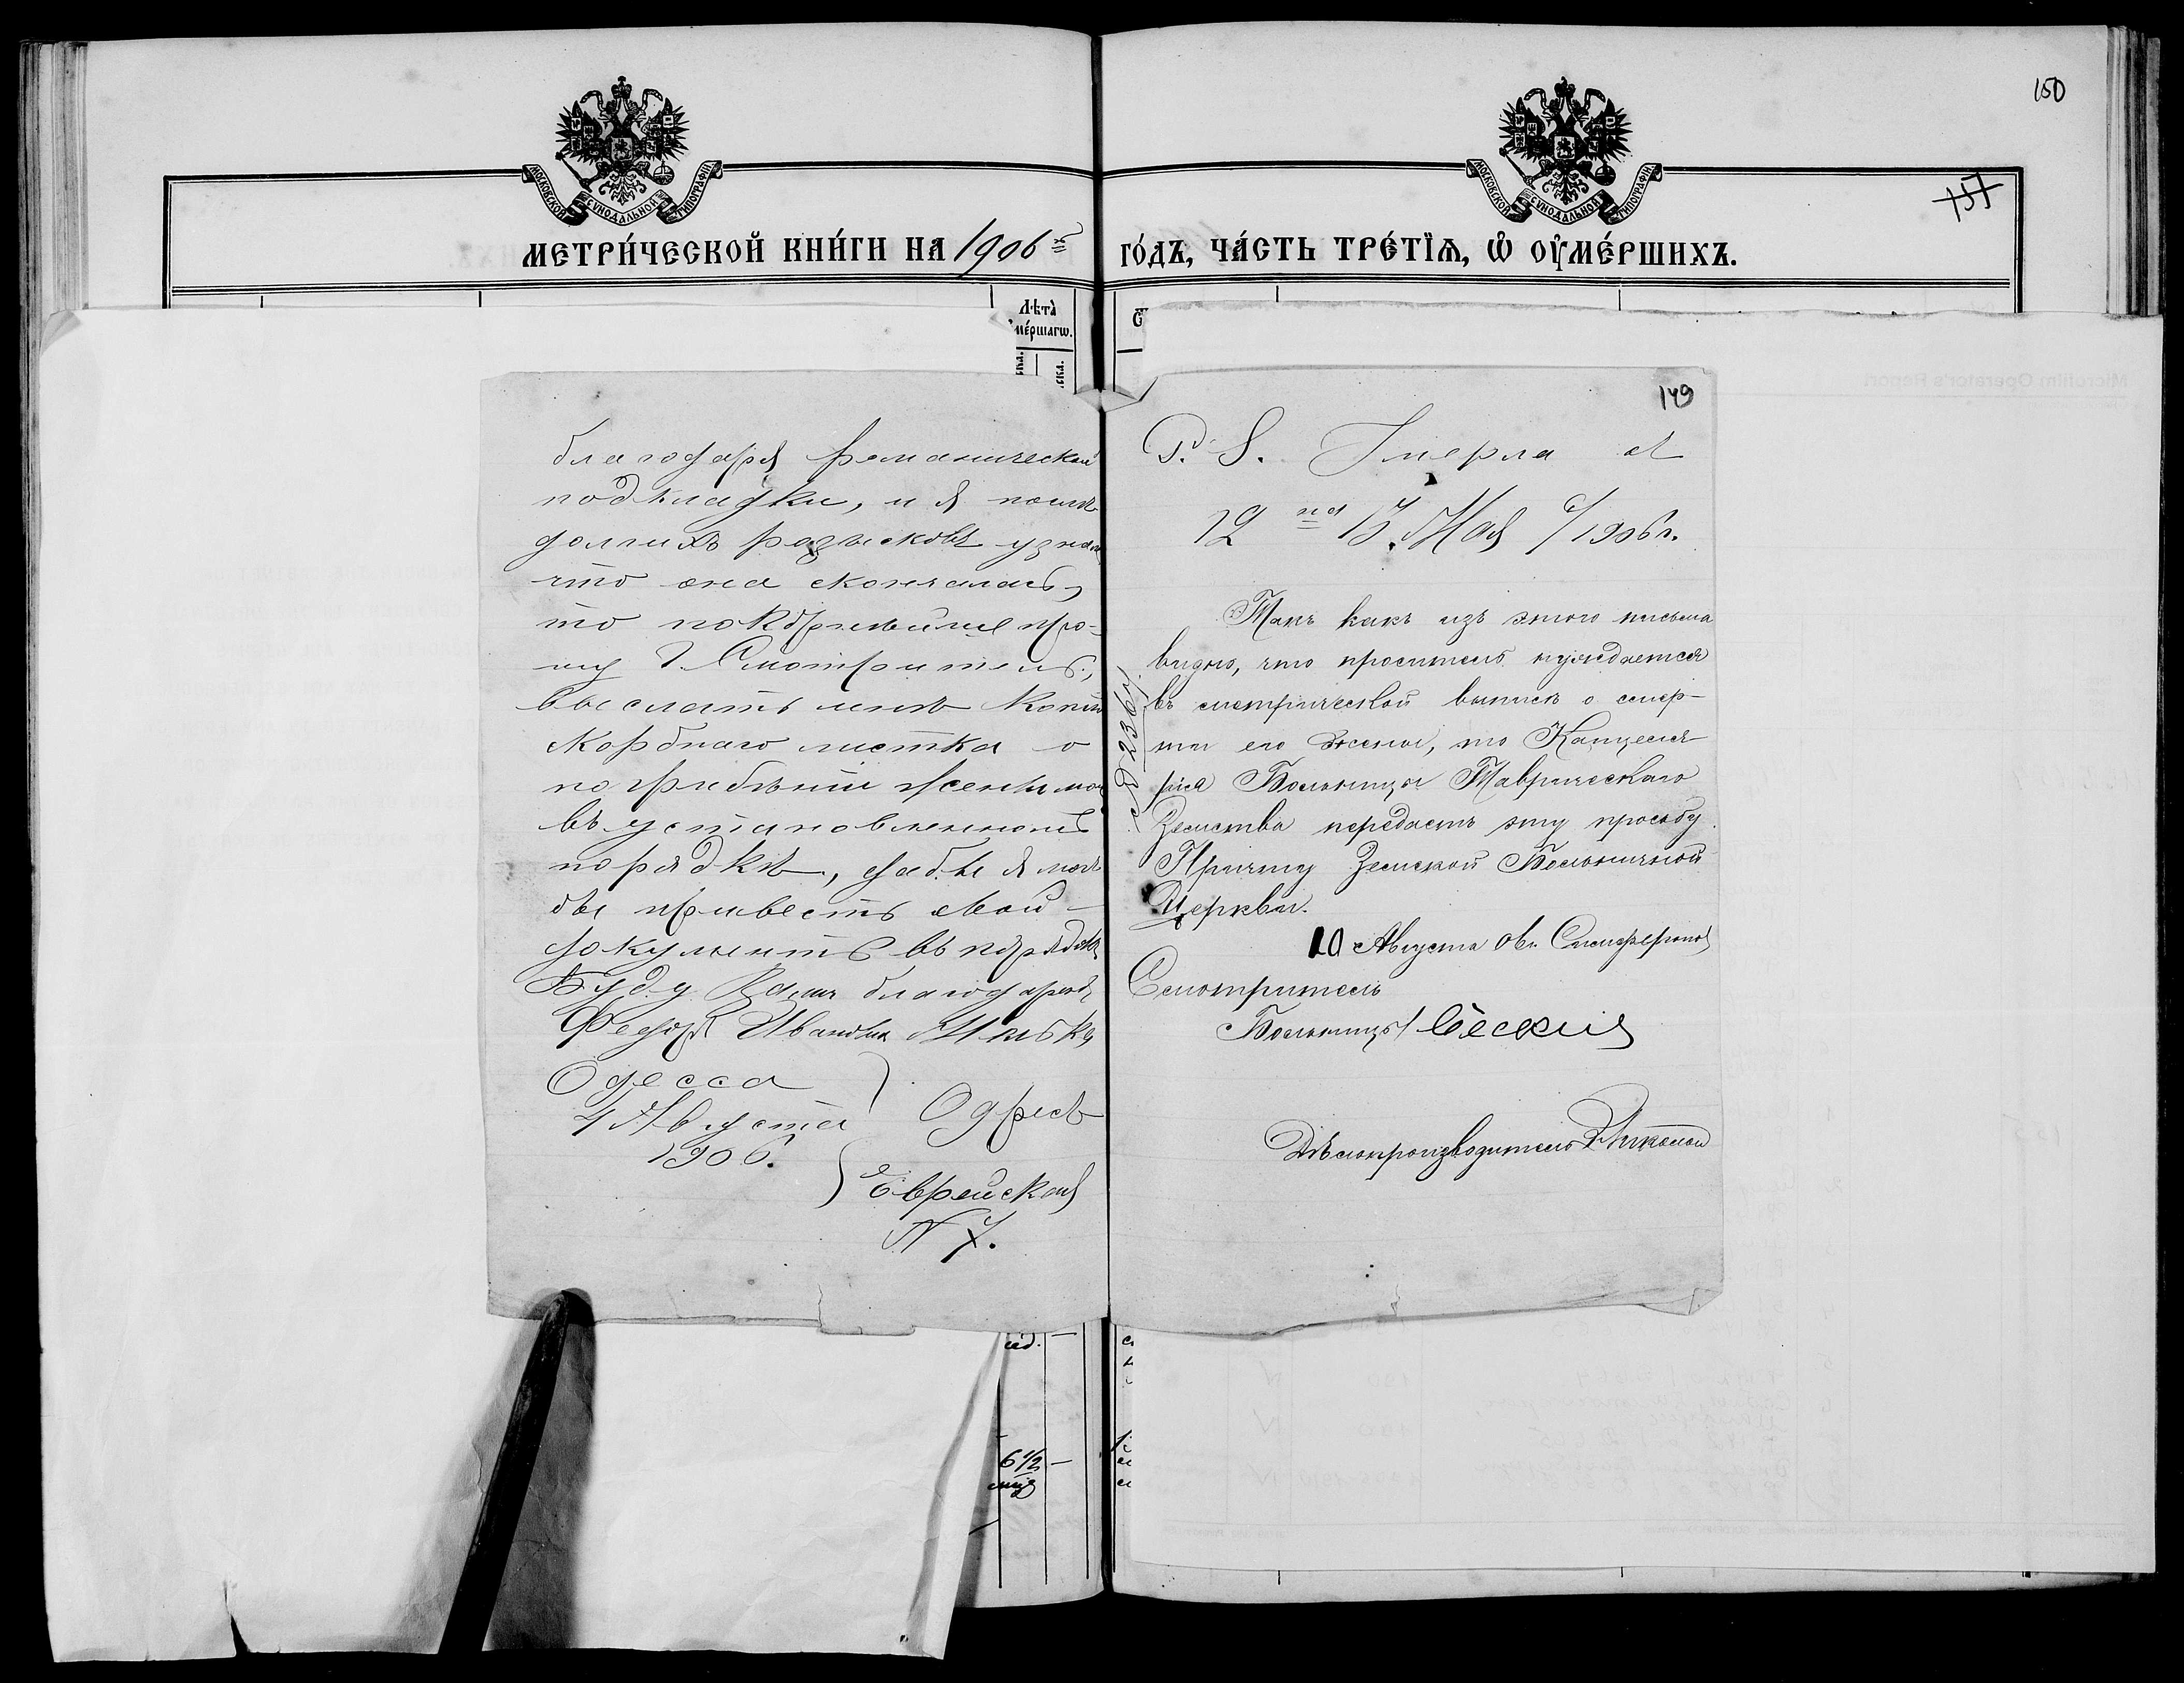 150
157
МЕТРИ́ЧЕСКОЙ КНИ́ГИ НА 1906й
ГО́ДЪ, ЧА́СТЬ ТРЕ́ТЇѦ, Ѡ҆ ОУ҆МЕ́РШИХЪ.
МОСКОВСКОЙ СѴНОДАЛЬНОЙ ТИПОГРАФІИ
МОСКОВСКОЙ СѴНОДАЛЬНОЙ ТИПОГРАФІИ
Лѣта
благодаря
подкладки, и я послѣ
долгихъ розысковъ узналъ
что она скончалась,
то покорнѣйше про-
шу Г. Смотритель,
выслать мнѣ копію
скорбнаго листка о
погрибѣніи жены моей
въ установленномъ
порядкѣ, дабы я могъ
бы привесть свой
документъ въ порядокъ
Буду Вамъ благодаренъ
Федоръ Ивановъ
Одесса
4 Августа
1906.
Одресъ
Еврейская
N 7.
149
P. S. Умерла съ
12 на 13 Мая с/1906 г.
Такъ какъ изъ этого письма
видно, что проситель нуждается
въ метрической выписи о смер-
ти его жены, то Канцеля-
рія Больницы Таврическаго
Земства передаетъ эту просьбу
Причту Земской Больничной
Церкви.
10 Августа 06 г. Симферополь
Смотритель
Больницы
Дѣлопроизводитель
№ 2364
6 1/2